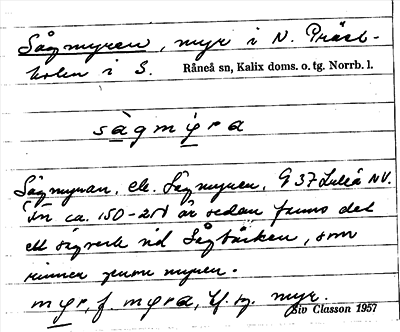 Sågmyren, myr i N. Präst-
holm i S. Råneå sn, Kalix doms. o. tg. Norrb. l.
sàgmýra
Sågmyran, ek. Sågmyren, G 37 Luleå NV.
För ca. 150-200 år sedan fanns det
ett sågverk vid Sågbäcken, som
rinner genom myren.
myr, f. myra, bf. sg. myr.
Siv Classon 1957